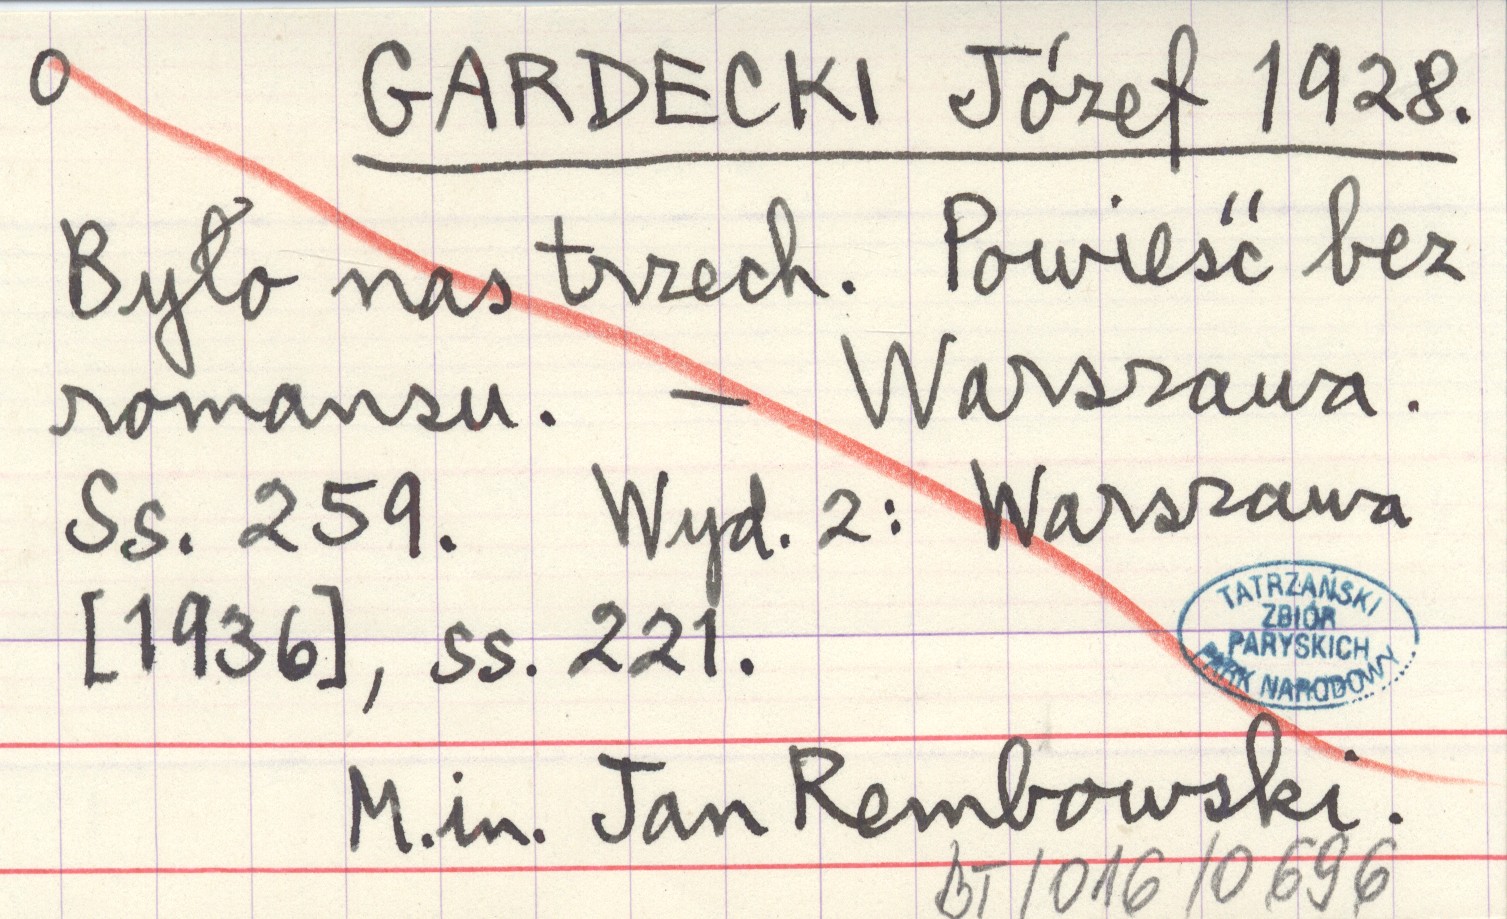 O GARDECKI Józef 1928.
Było nas trzech. Powieść bez
romansu. – Warszawa.
Ss. 259. Wyd. 2: Warszawa
[1936], ss. 221.
TATRZAŃSKI
ZBIÓR
PARYSKICH
PARK NARODOWY
M.in. Jan Rembowski.
BT/016/0696